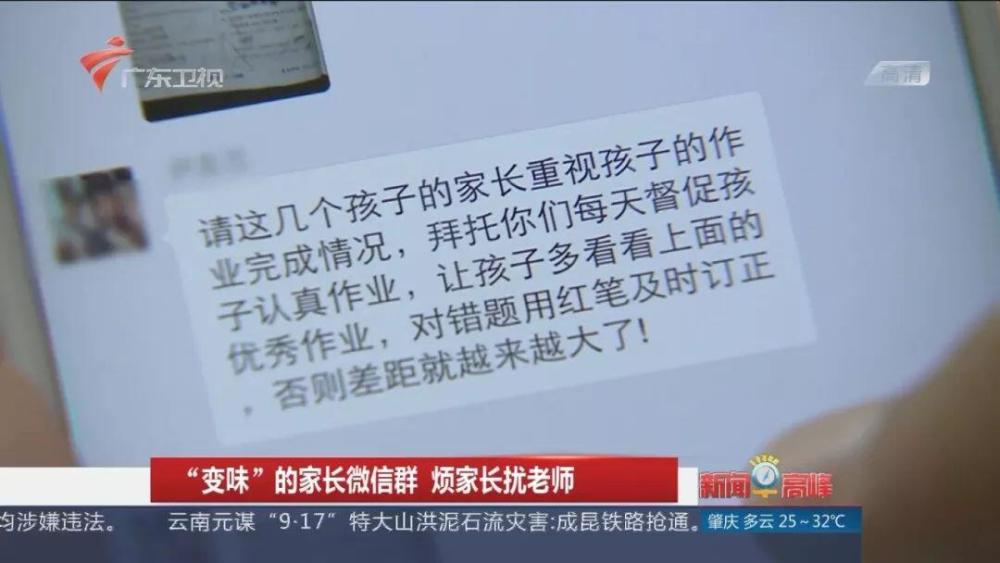 广东卫视
高清
请这几个孩子的家长重视孩子的作
业完成情况，拜托你们每天督促孩
子认真作业，让孩子多看看上面的
优秀作业，对错题用红笔及时订正
，否则差距就越来越大了!
“变味”的家长微信群 烦家长扰老师
新闻 高峰
均涉嫌违法。 云南元谋“9·17”特大山洪泥石流灾害:成昆铁路抢通。
肇庆 多云 25~32℃